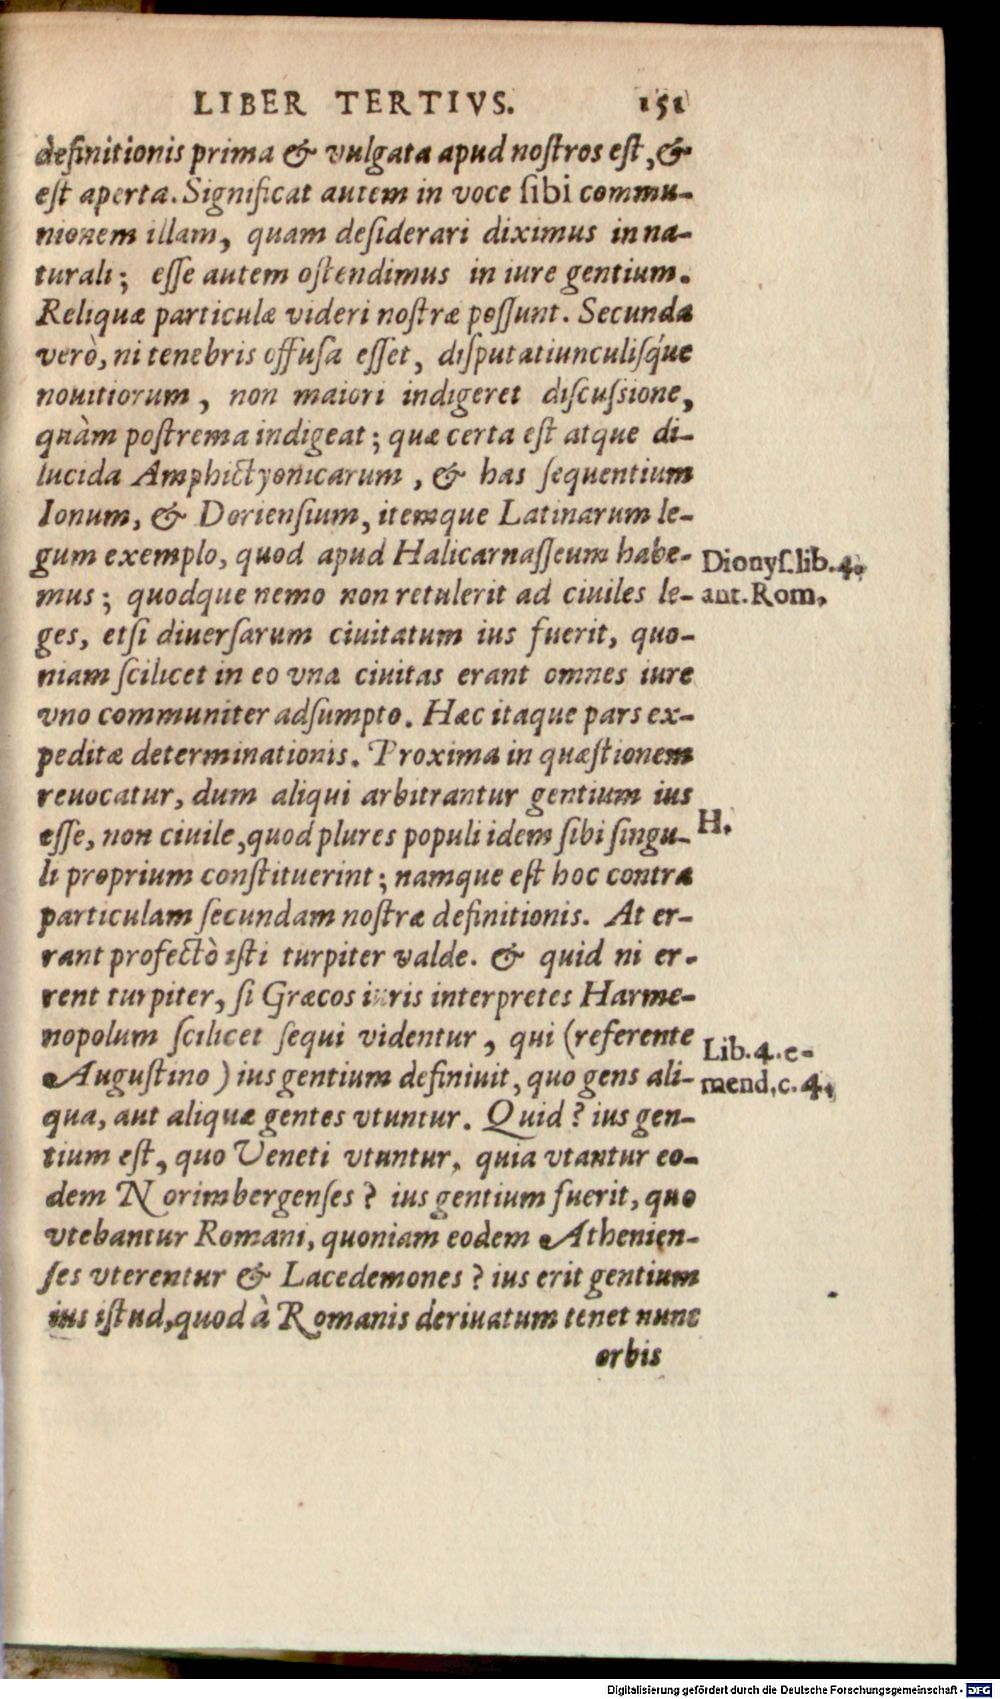 LIBER TERTIVS. 151
definitionis prima & vulgata apud noſtros eſt, &
eſt aperta. Significat autem in voce ſibi commu-
nionem illam, quam deſiderari diximus in na-
turali; eſſe autem oſtendimus in iure gentium.
Reliquæ particulæ videri noſtræ poſſunt. Secunda
verò, ni tenebris offuſa eſſet, diſputatiunculiſq́ue
nouitiorum, non maiori indigeret diſcuſsione,
quàm poſtrema indigeat; quæ certa eſt atque di-
lucida Amphictyonicarum, & has ſequentium
Ionum, & Dorienſium, itemque Latinarum le-
gum exemplo, quod apud Halicarnaſſeum habe-
Dionyſ. lib. 4.
mus; quodque nemo non retulerit ad ciuiles le-
ant. Rom.
ges, etſi diuerſarum ciuitatum ius fuerit, quo-
niam ſcilicet in eo vna ciuitas erant omnes iure
vno communiter adſumpto. Hæc itaque pars ex-
peditæ determinationis. Proxima in quæſtionem
reuocatur, dum aliqui arbitrantur gentium ius
H.
eſſe, non ciuile, quod plures populi idem ſibi ſingu-
li proprium conſtituerint; namque eſt hoc contra
particulam ſecundam noſtræ definitionis. At er-
rant profectò iſti turpiter valde. & quid ni er-
rent turpiter, ſi Græcos iuris interpretes Harme-
nopolum ſcilicet ſequi videntur, qui (referente
Lib. 4. e-
Auguſtino) ius gentium definiuit, quo gens ali-
mend. c. 4.
qua, aut aliquæ gentes vtuntur. Quid? ius gen-
tium eſt, quo Veneti vtuntur, quia vtantur eo-
dem Norimbergenſes? ius gentium fuerit, quo
vtebantur Romani, quoniam eodem Athenien-
ſes vterentur & Lacedemones? ius erit gentium
ius iſtud, quod à Romanis deriuatum tenet nunc
orbis
Digitalisierung gefördert durch die Deutsche Forschungsgemeinschaft - DFG